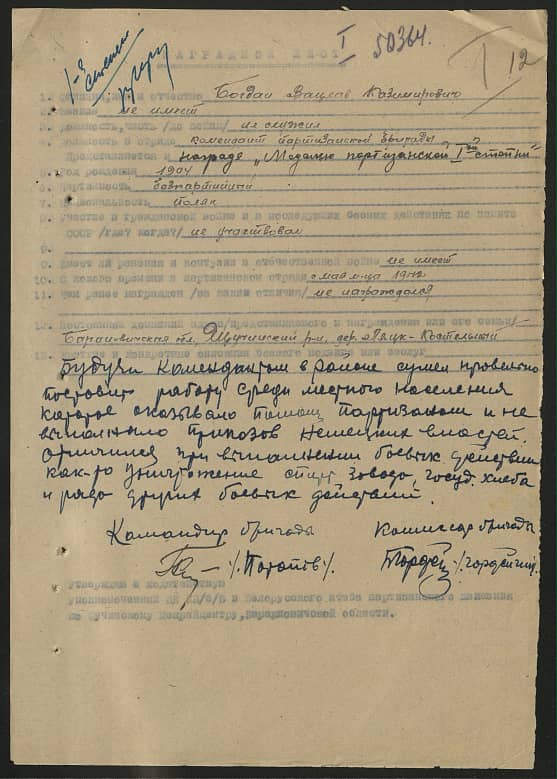 I 50364.
I 12
1-й степени
НАГРАДНОЙ ЛИСТ
1. Фамилия, имя и отчество Богдан Вацлав Казимирович
2. Звание не имеет
3. Должность, часть /до войны/ не служил
4. Должность в отряде комендант партизанской бригады
Представляется к награде „Медалью партизанской I-ой степени"
5. Год рождения 1904
6. Партийность безпартийный
7. Национальность поляк
8. Участие в гражданской войне и в последующих боевых действиях по защите
СССР /где? когда?/ не участвовал
9.
9. Имеет ли ранения и контузии в отечественной войне не имеет
10. С какого времени в партизанском отряде с мая м-ца 1942
11. Чем ранее награжден /за какие отличия/ не награждался
12. Постоянный домашний адрес /представляемого к награждению или его семьи/
Барановичская обл, Щучинский р-н, дер.
13. Краткое и конкретное описание боевого подвига или заслуг
Будучи Комендантом в районе сумел правельно
поставить работу среди местного населения
которое оказывало помощ партизанам и не
выполняло приказов немецких властей.
Отличился при выполнении боевых действий
как-то уничтожение спирт завода, госуд. хлеба
и ряда других боевых действий.
Командир бригады Комиссар бригады
/Потапов/. /Гордейчик
Утверждаю и ходатайствую
уполномоченный ЦК КП/б/Б и Белорусского штаба партизанского движения
по Щучинскому Межрайцентру, Барановичской области.